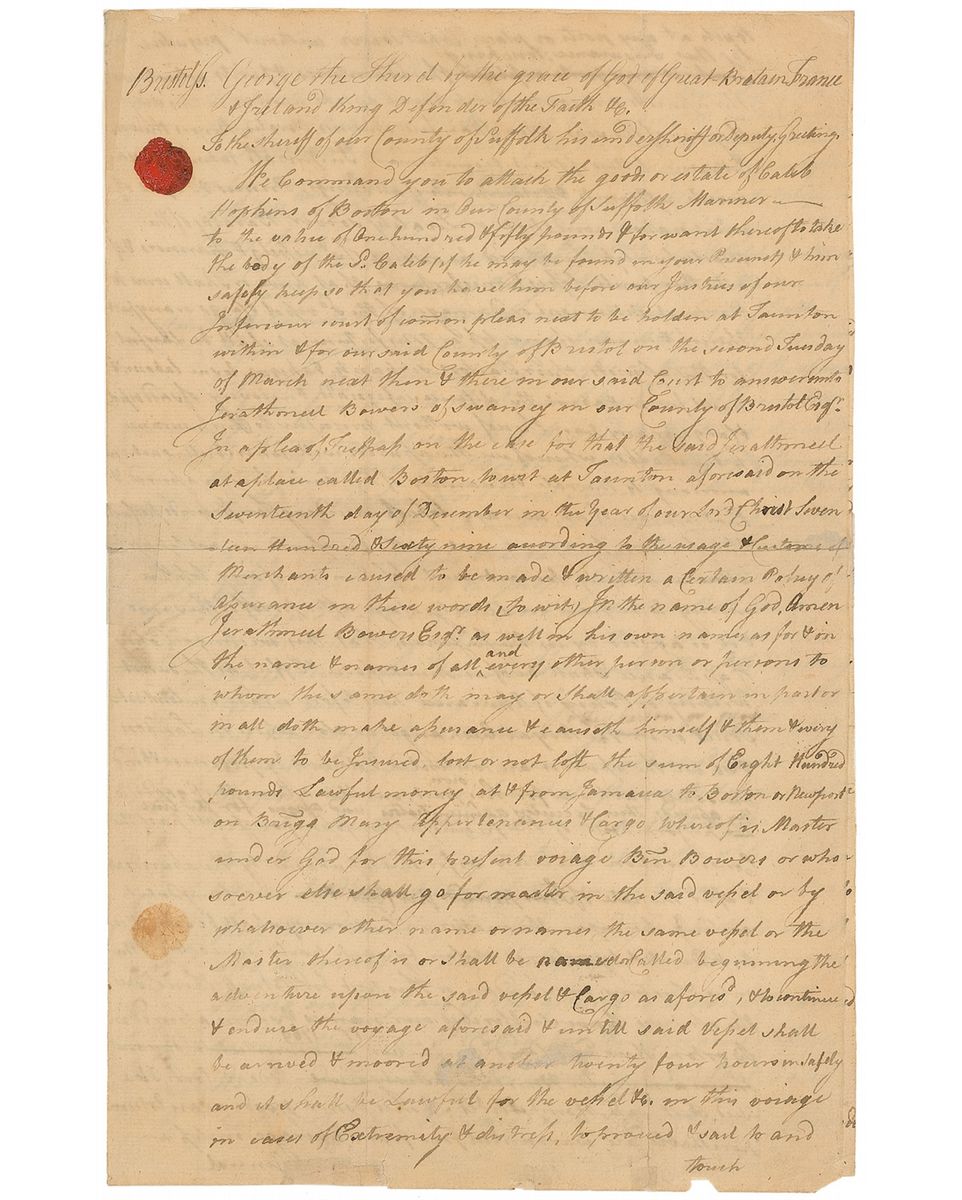 Bristol ss. George the Third by the grace of God of Great Britain France
& Ireland King Defender of the Faith &c.
To the sheriff of our County of Suffolk his undersheriff or Deputy, Greeting.
We Command you to attach the goods or estate of Caleb
Hopkins of Boston in Our County of Suffolk Mariner
to the value of One hundred & fifty pounds & for want thereof to take
the body of the sd. Caleb (if he may be found in your Precinct) & him
safely keep so that you have him before our Justices of our
Inferiour court of common pleas next to be holden at Taunton
within & for our said County of Bristol on the second Tuesday
of March next then & there in our said Court to answer unto
Jerathmeel Bowers of Swansey in our County of Bristol Esqr.
In a plea of Trespass on the case for that the said Jerathmeel
at a place called Boston to wit at Taunton aforesaid on the
Seventeenth day of December in the Year of our Lord Christ Seven
teen Hundred & Sixty nine acording to the usage & Customs of
Merchants caused to be made & written a Certain Policy of
Assurance in these words (to wit) In the name of God, Amen
Jerathmeel Bowers Esqr. as well in his own name, as for & in
the name & names of all and every other person or persons to
whom the same doth may or shall appertain in part or
in all doth make assurance & causeth himself & them & every
of them to be Insured, lost or not lost the sum of Eight Hundred
pounds Lawful money at & from Jamaca to Boston or Newport
on Brigg Mary Appertenances & Cargo, whereof is Master
under God for this present voiage Ben Bowers or who-
soever else shall go for master in the said vessel or by
whatsoever other name or names the same vessel or the
Master thereof is or shall be named or Called beginning the
adventure upon the said vessel & Cargo as aforesd, & to continue
& endure the voyage aforesaid & untill said Vessel shall
be arrived & moored at anchor twenty four hours in safety
and it shall be Lawful for the vessel &c. in this voiage
in cases of Extremity & distress, to proceed & sail to and
touch